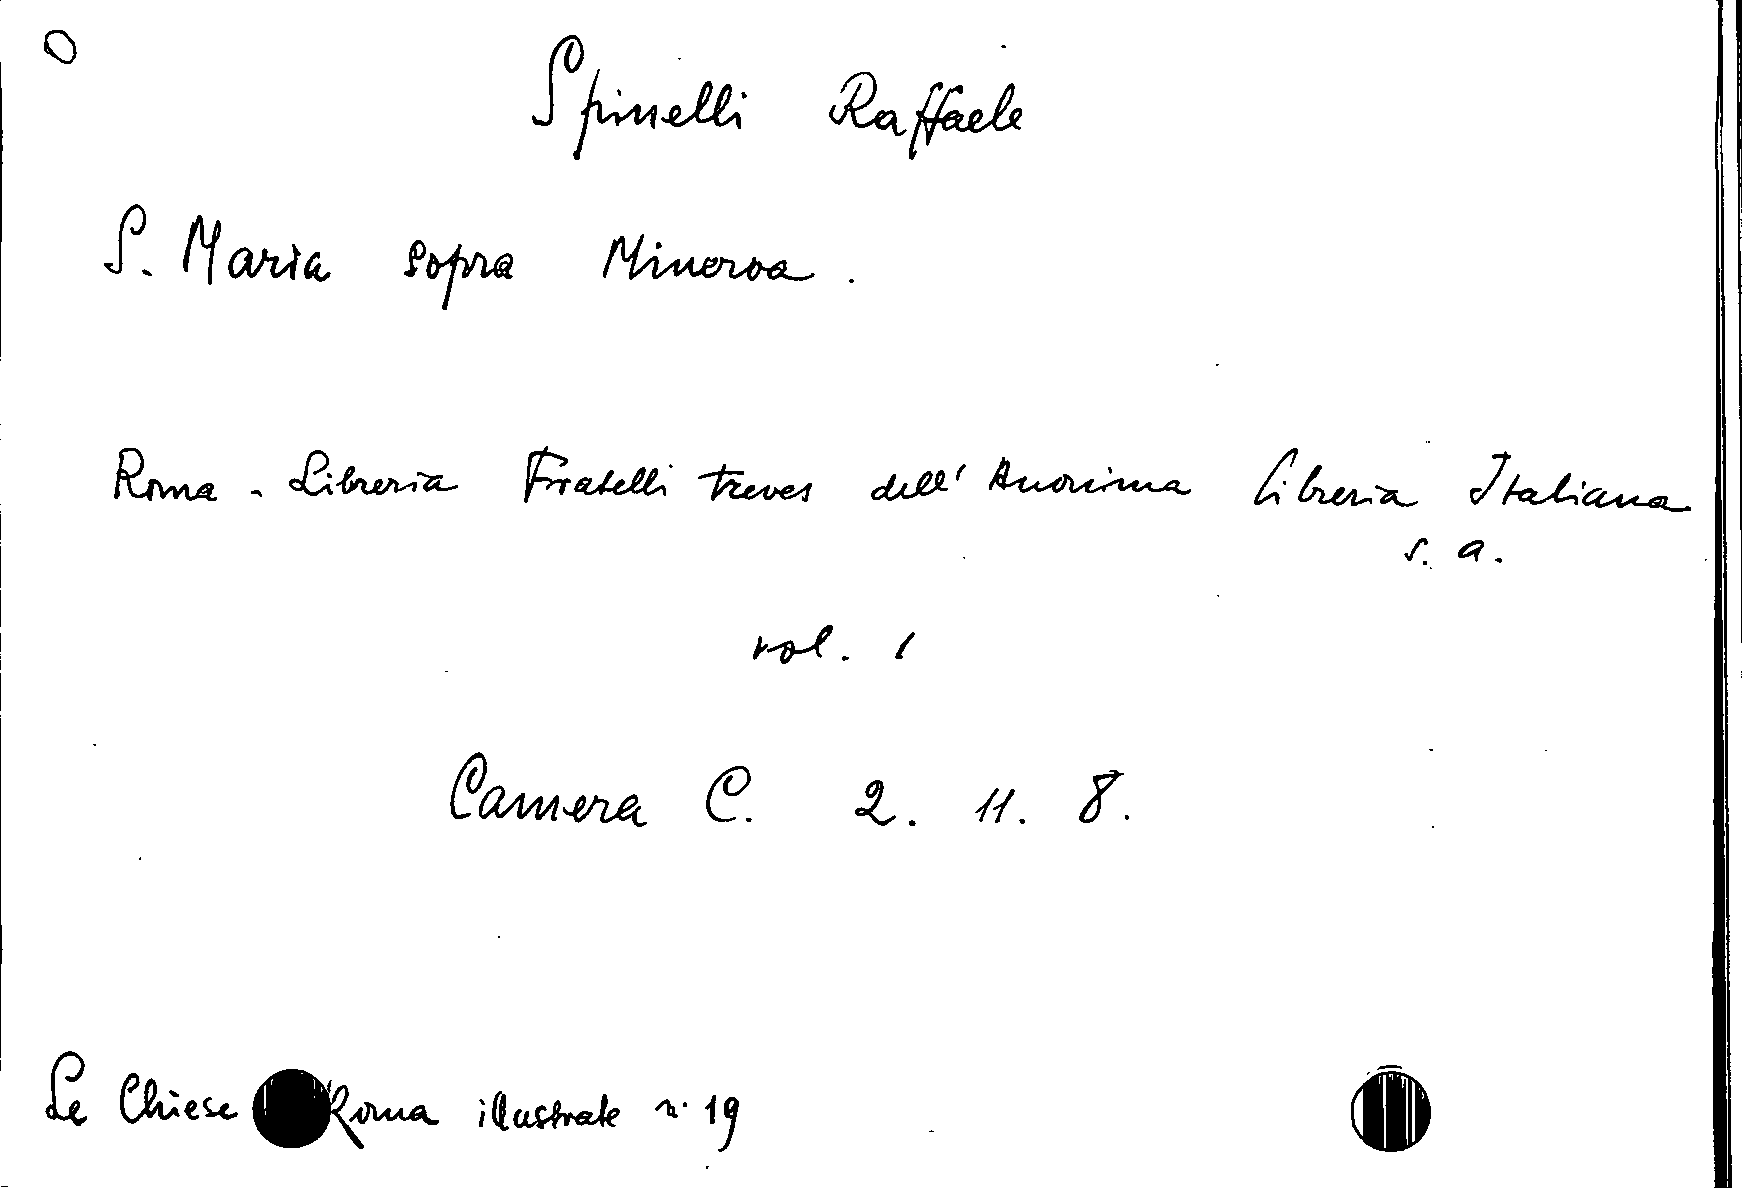 Spinelli Raffaele
S. Maria sopra Minerva.
Roma - Libreria Fratelli Treves dell'Anonima Libreria Italiana
s. a.
vol. 1
Camera C. 2. 11. 8.
Le Chiese Roma illustrate n. 19